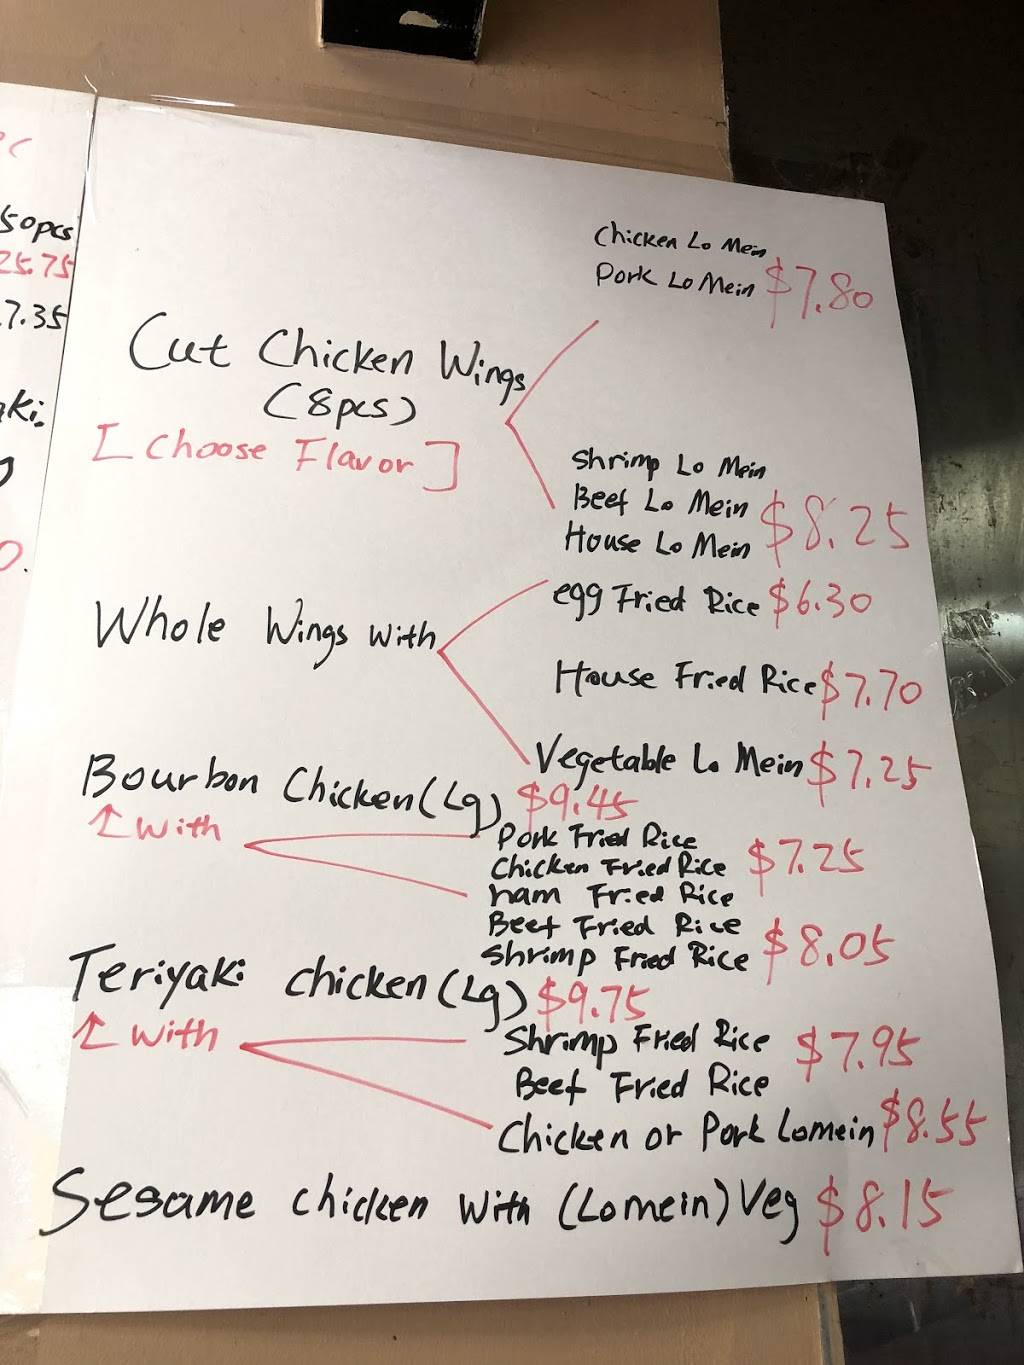 50pcs
25.75
7.35
Chicken Lo Mein
Pork Lo Mein $7.80
Cut Chicken Wings
(8pcs)
[Choose Flavor]
Shrimp Lo Mein
Beef Lo Mein $8.25
House Lo Mein
Whole Wings with
egg Fried Rice $6.30
House Fried Rice $7.70
Vegetable Lo Mein $7.25
Bourbon Chicken (Lg) $9.45
↑ with
Pork Fried Rice
Chicken Fried Rice $7.25
ham Fried Rice
Beef Fried Rice
Shrimp Fried Rice $8.05
Teriyaki chicken (Lg) $9.75
↑ with
Shrimp Fried Rice $7.95
Beef Fried Rice
Chicken or Pork Lomein $8.55
Sesame chicken with (Lomein) Veg $8.15